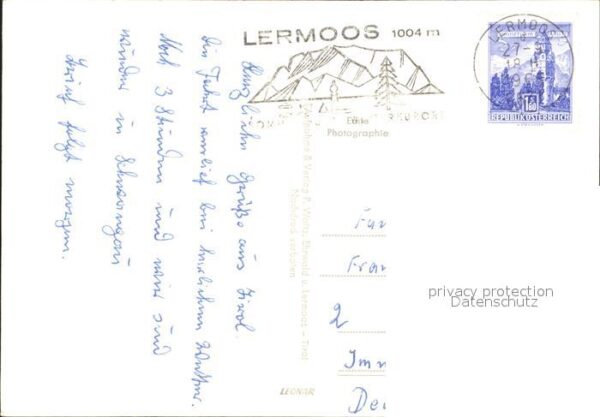 LERMOOS 1004 m
LERMOOS
27.
18
196
1.80
REPUBLIK ÖSTERREICH
Echte
Photographie
KURORT
Herzliche Grüße aus Tirol.
Die Fahrt verlief bei herrlichem
Noch 3 Stunden und wir sind
wieder in Schwangau
Brief folgt morgen.
Aufnahme & Verlag P. Ehrwald u. Lermoos - Tirol
Nachdruck verboten
Fam
Fran
2
Imm
Deu
LEONAR
privacy protection
Datenschutz